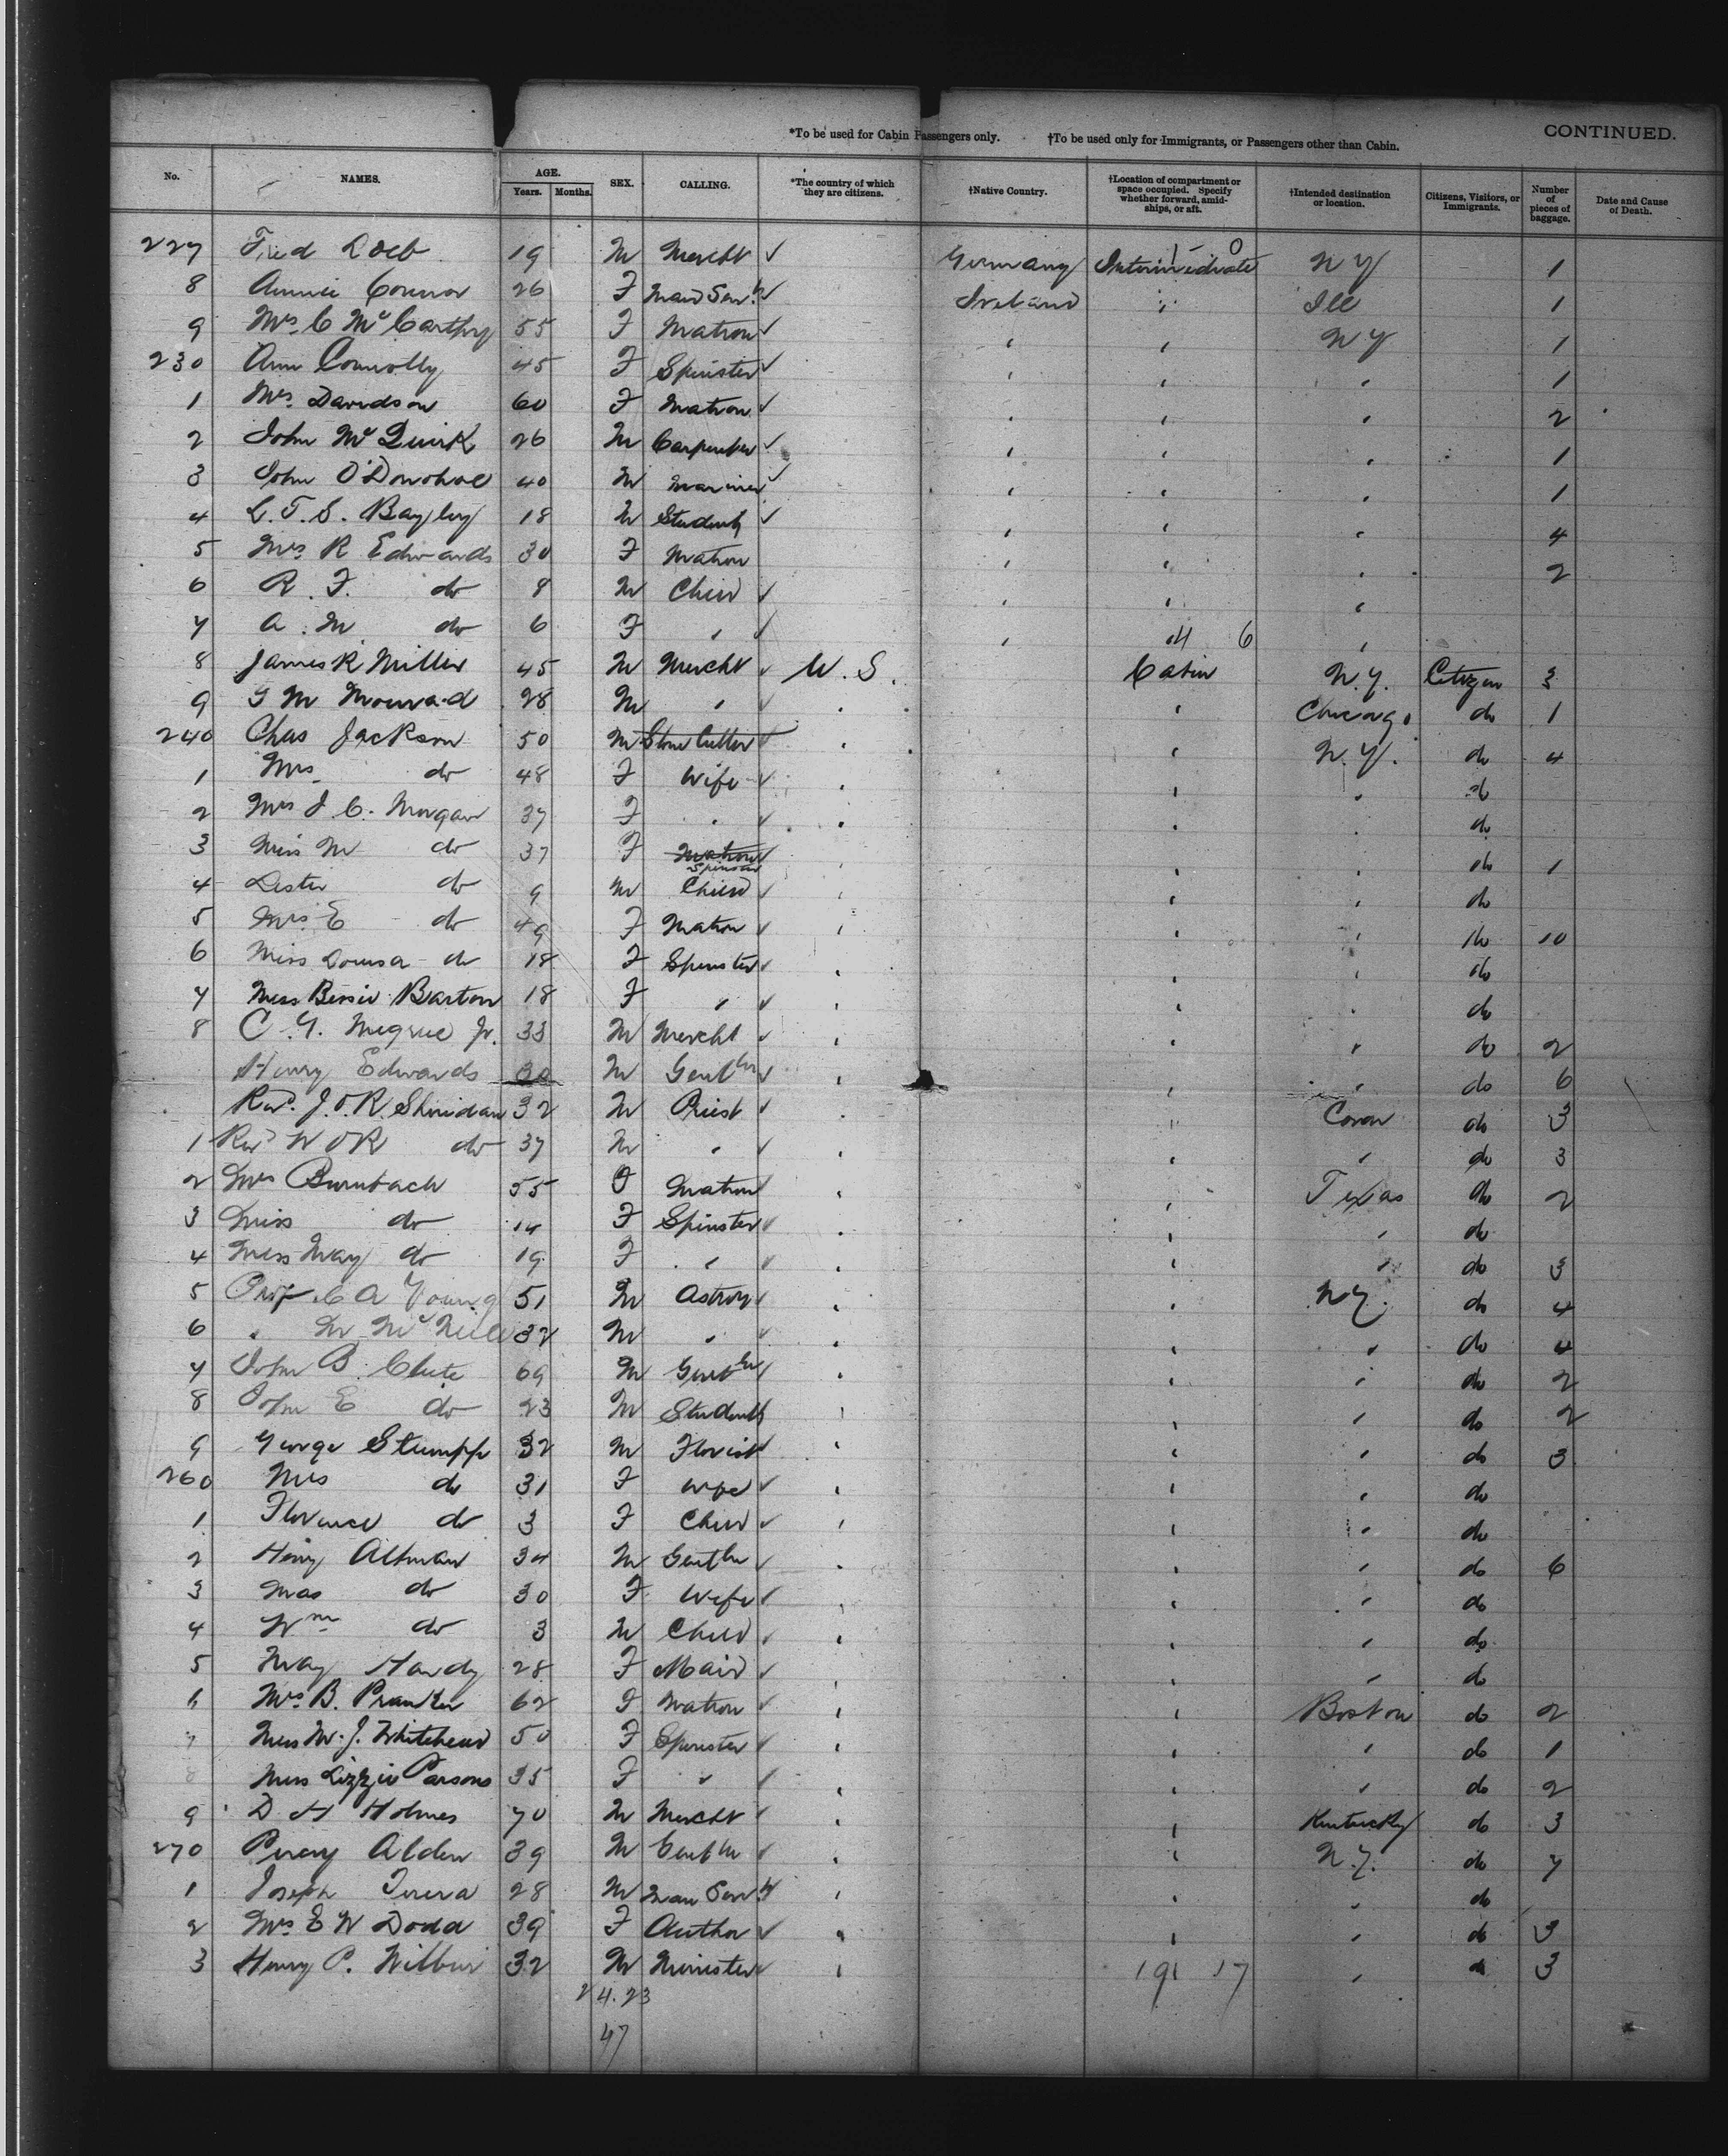 CONTINUED.
*To be used for Cabin Passengers only. †To be used only for Immigrants, or Passengers other than Cabin.
No. NAMES. AGE. Years. Months. SEX. CALLING. *The country of which they are citizens. †Native Country. †Location of compartment or space occupied. Specify whether forward, amidships, or aft. †Intended destination or location. Citizens, Visitors, or Immigrants. Number of pieces of baggage. Date and Cause of Death.
227 Fred Loeb 19 M Mercht ✓ Germany Intermediate 1 0 N Y 1
8 Annie Connor 26 F Maid Servt ✓ Ireland " Ill 1
9 Mrs C McCarthy 55 F Matron ✓ " " N Y 1
230 Ann Connolly 45 F Spinster ✓ " " " 1
1 Mrs Davidson 60 F Matron ✓ " " " 2
2 John McQuirk 26 M Carpenter ✓ " " " 1
3 John O'Donohoe 40 M Mariner ✓ " " " 1
4 L. T. S. Bayley 18 M Student ✓ " " " 4
5 Mrs R Edwards 30 F Matron " " " 2
6 R. F. do 8 M Child ✓ " " "
7 A. M. do 6 F " ✓ " 4 6 "
8 James R Miller 45 M Mercht ✓ U. S. Cabin N.Y. Citizen 3
9 G M 28 M " ✓ " " Chicago do 1
240 Chas Jackson 50 M Stone Cutter ✓ " " N.Y. do 4
1 Mrs do 48 F Wife ✓ " " " do
2 Mrs J C. Morgan 37 F " ✓ " " " do
3 Miss M do 37 F Matron Spinster ✓ " " " do 1
4 Lester do 9 M Child ✓ " " " do
5 Mrs E do 49 F Matron ✓ " " " do 10
6 Miss Louisa do 18 F Spinster ✓ " " " do
7 Miss Bessie Barton 18 F " ✓ " " " do
8 C. G. Megrue Jr. 33 M Mercht ✓ " " " do 2
Henry Edwards 30 M Gentln ✓ " " " do 6
Revd. J. O.R. Sheridan 32 M Priest ✓ " " Conn do 3
1 Revd W OR do 37 M " ✓ " " " do 3
2 Mrs Burnbach 55 F Matron ✓ " " Texas do 2
3 Miss do 14 F Spinster ✓ " " " do
4 Miss May do 19 F " ✓ " " " do 3
5 Prof. C A Young 51 M Astrop ✓ " " N.Y. do 4
6 " McNeill 32 M " ✓ " " " do 4
7 John B. Clute 69 M Gentln ✓ " " " do 2
8 John E do 23 M Student ✓ " " " do 2
9 George Stumpp 32 M Florist ✓ " " " do 3
260 Mrs do 31 F Wife ✓ " " " do
1 Florence do 3 F Child ✓ " " " do
2 Henry Altman 34 M Gentln ✓ " " " do 6
3 Mrs do 30 F Wife ✓ " " " do
4 Wm do 3 M Child ✓ " " " do
5 May Hardy 28 F Maid ✓ " " " do
6 Mrs B. 62 F Matron ✓ " " Boston do 2
7 Miss M. J. Whitehead 50 F Spinster ✓ " " " do 1
8 Miss Lizzie Parsons 35 F " ✓ " " " do 2
9 D H Holmes 70 M Mercht ✓ " " Kentucky do 3
270 Percy Alden 39 M Gentln ✓ " " N.Y. do 7
1 Joseph 28 M Man Servt ✓ " " " do
2 Mrs E W Dodd 39 F Author ✓ " " " do 3
3 Henry P. Wilbur 32 M Minister ✓ " 19 17 " do 3
24.23
47